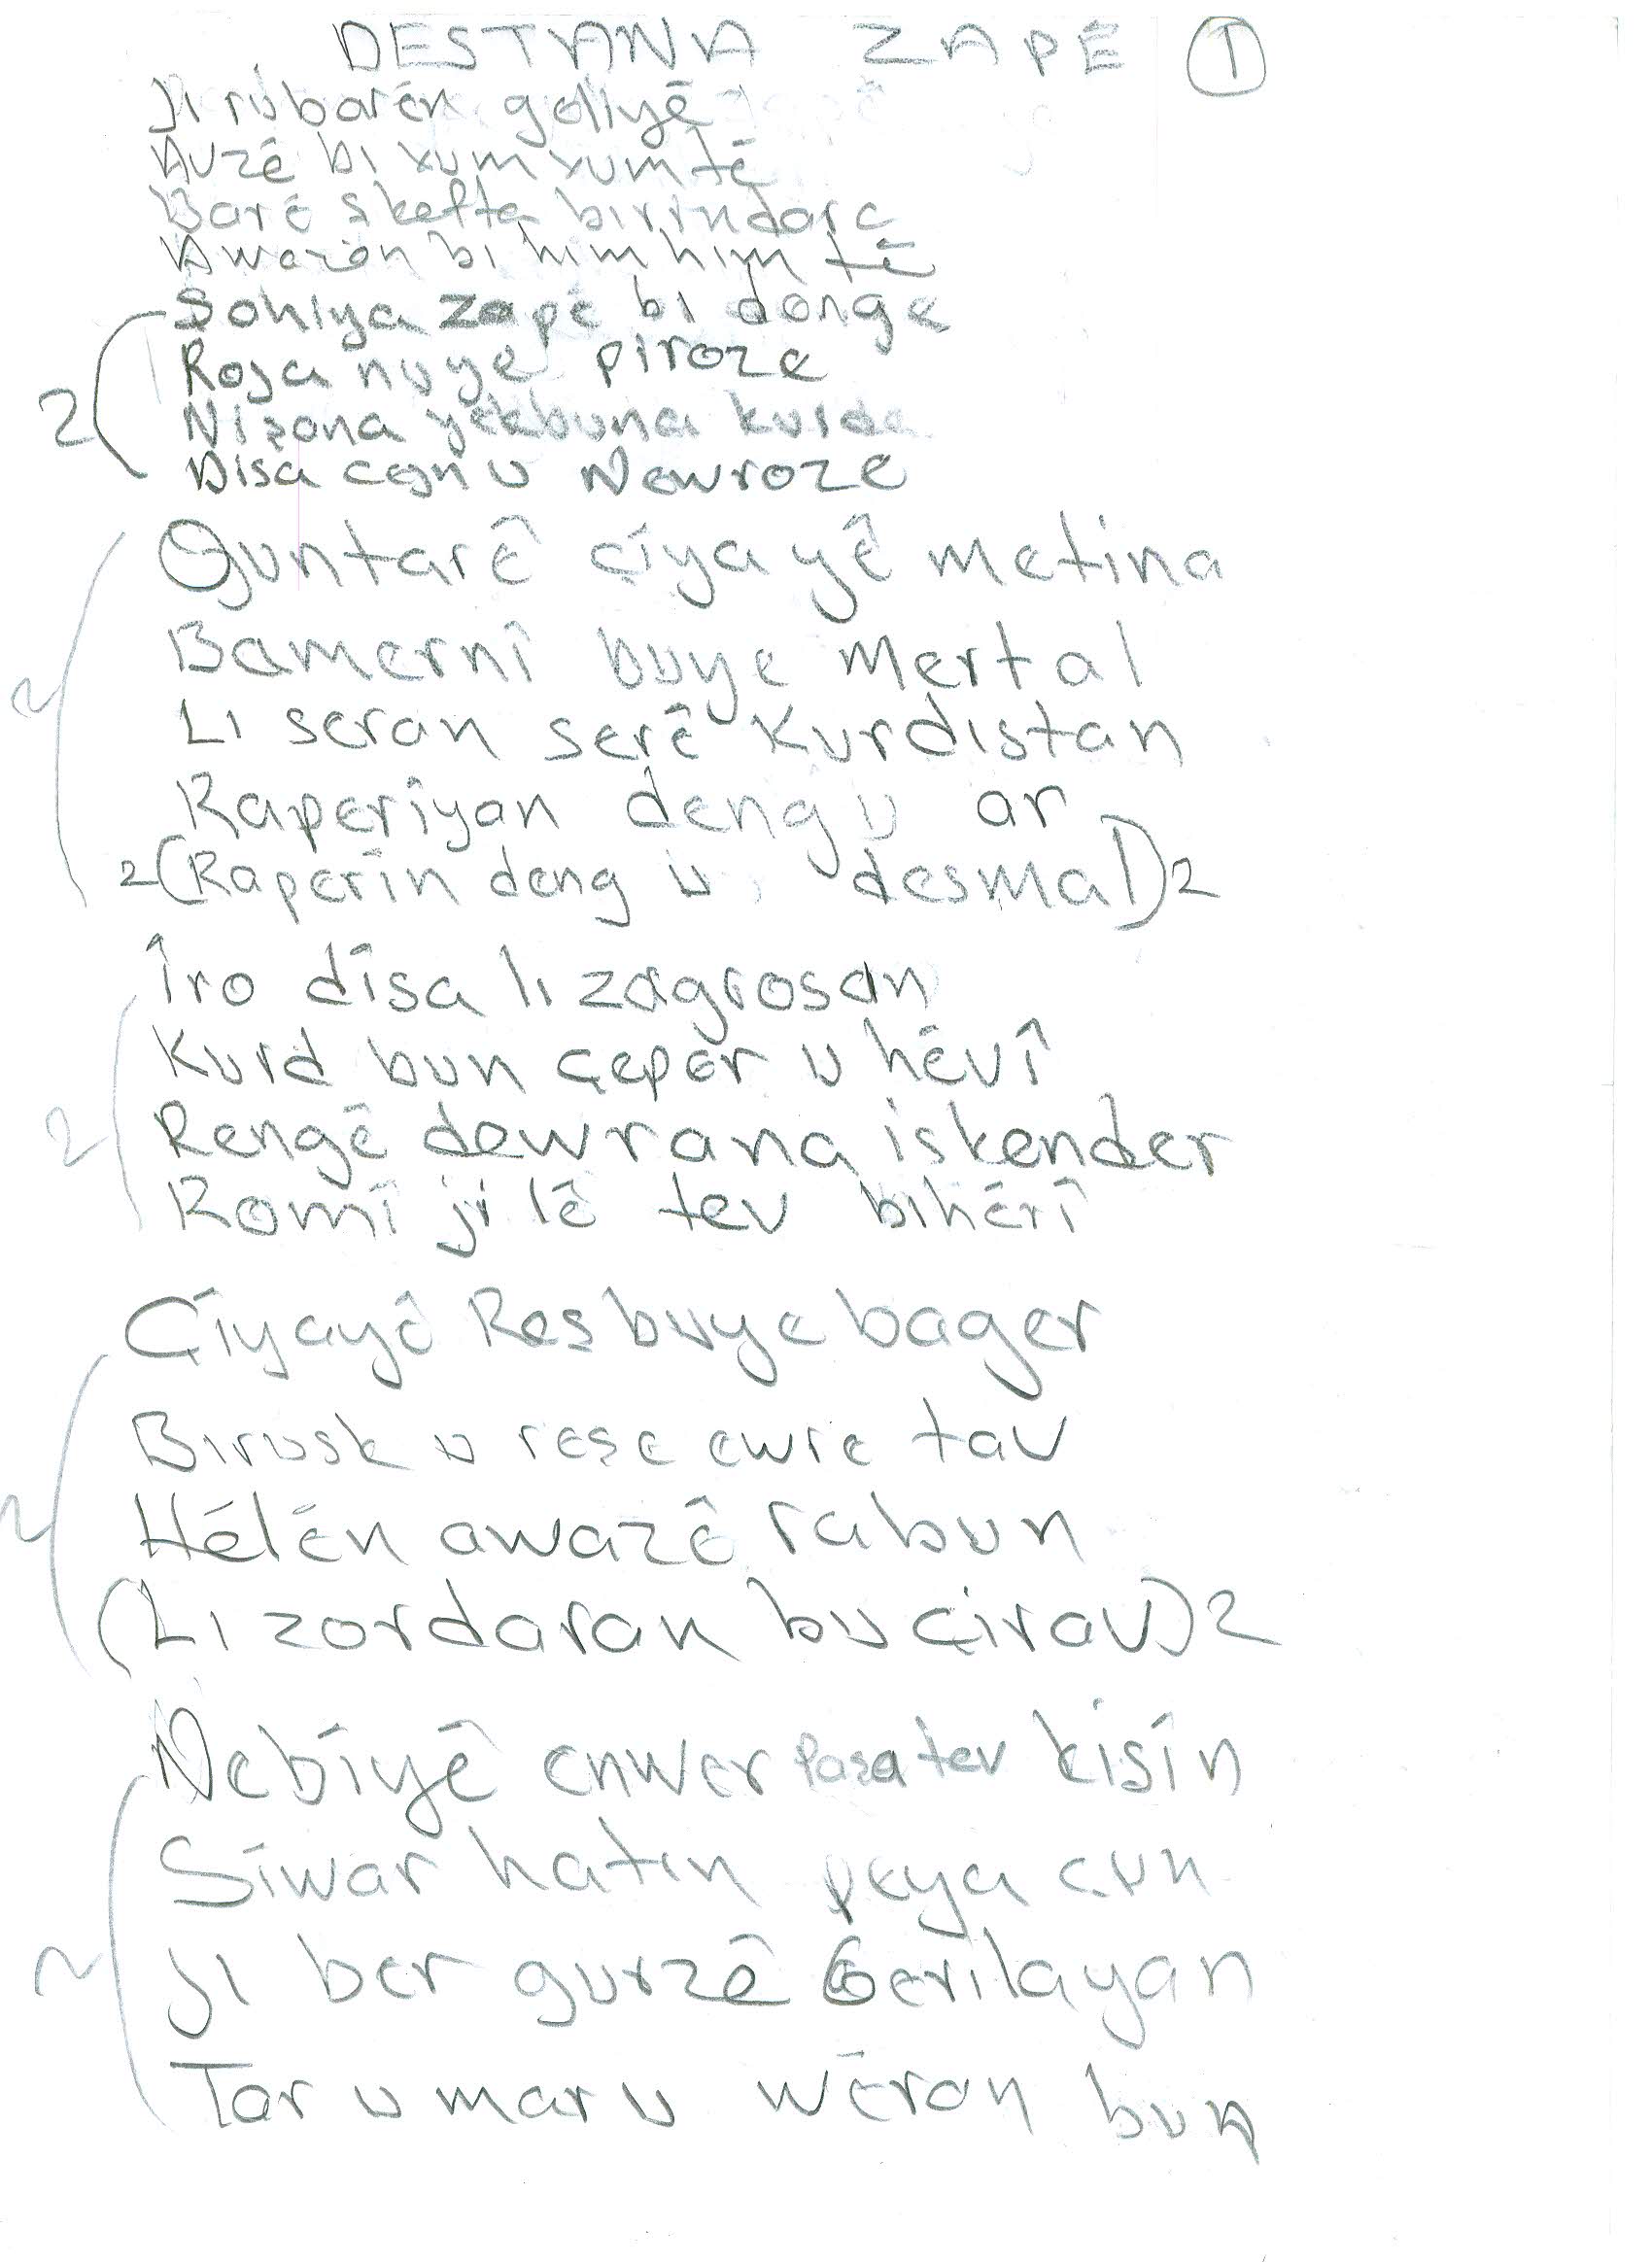 DESTANA ZAPÊ 1
Ji rûbarên geliyê
Avzê bi xum xum tê
Barê skefta birîndare
Awazên bi him him tê
Sohiya zapê bi denge
Roja nuye piroze
Nişana yekbuna kurda
Disa cejn u Newroze
Quntarê çiyayê metina
Bamernî buye mertal
Li seran serê Kurdistan
Raperiyan deng u ar
2 (Raperîn deng u desmal) 2
Îro dîsa li zagrosan
2 Kurd bun çeper u hêvî
Rengê dewrana iskender
Romî ji lê tev bihêrî
Çiyayê Reş buye bager
Birusk u reşe ewre tav
2 Hêlên awazê rabun
(Li zordaran bu çirav) 2
Nebîyê enwer Paşa tev kişîn
Siwar hatin peya çun
2 Ji ber gurzê Gerilayan
Tar u mar u wêran bun